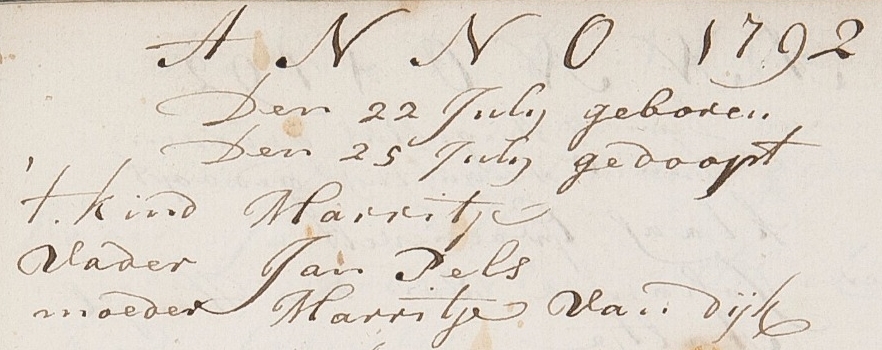 ANNO 1792
Den 22 July geboren
Den 25 July gedoopt
't. kind Marritje
Vader Jan Pels
moeder Marritje Van dijk